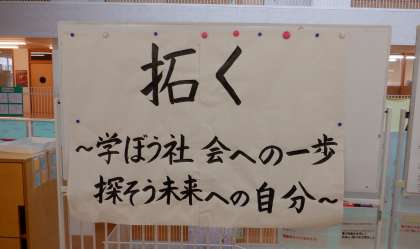 拓く
～学ぼう社会への一歩
探そう未来への自分～